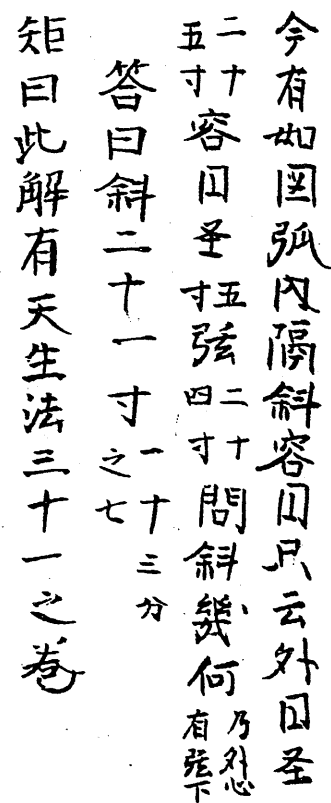 今有如図弧内隔斜容円只云外円圣
二十五寸容円圣五寸弦二十四寸問斜幾何乃外心有弦下
答曰斜二十一寸一十三分之七
矩曰此解有天生法三十一之巻